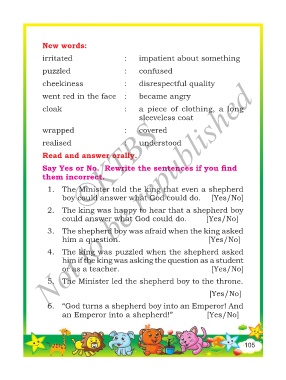 New words:
irritated : impatient about something
puzzled : confused
cheekiness : disrespectful quality
went red in the face : became angry
cloak : a piece of clothing, a long
sleeveless coat
wrapped : covered
realised : understood
Read and answer orally.
Say Yes or No. Rewrite the sentences if you find
them incorrect.
1. The Minister told the king that even a shepherd
boy could answer what God could do. [Yes/No]
2. The king was happy to hear that a shepherd boy
could answer what God could do. [Yes/No]
3. The shepherd boy was afraid when the king asked
him a question. [Yes/No]
4. The king was puzzled when the shepherd asked
him if the king was asking the question as a student
or as a teacher. [Yes/No]
5. The Minister led the shepherd boy to the throne.
[Yes/No]
6. “God turns a shepherd boy into an Emperor! And
an Emperor into a shepherd!” [Yes/No]
©KTBS
Not to be republished
105